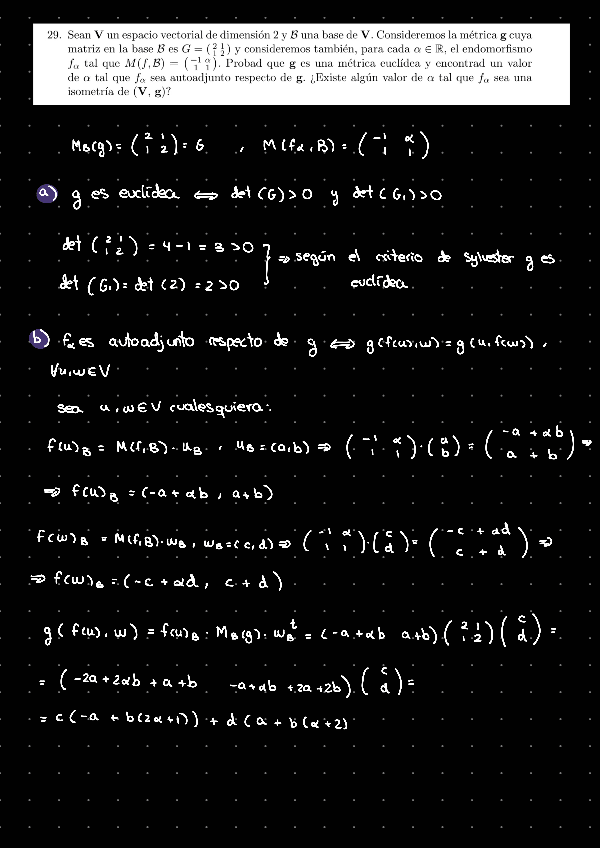 29. Sean V un espacio vectorial de dimensión 2 y B una base de V. Consideremos la métrica g cuya
matriz en la base B es G = (2 1 / 1 2) y consideremos también, para cada α ∈ ℝ, el endomorfismo
f_α tal que M(f, B) = (-1 α / 1 1). Probad que g es una métrica euclídea y encontrad un valor
de α tal que f_α sea autoadjunto respecto de g. ¿Existe algún valor de α tal que f_α sea una
isometría de (V, g)?
M_B(g) = (2 1 / 1 2) = G , M(fα, B) = (-1 α / 1 1)
a) g es euclídea ⟺ det(G) > 0 y det(G₁) > 0
det (2 1 / 1 2) = 4 - 1 = 3 > 0
det (G₁) = det (2) = 2 > 0 } ⇒ según el criterio de sylvester g es
euclídea
b) f_α es autoadjunto respecto de g ⟺ g(f(u), w) = g(u, f(w)) ,
∀u, w ∈ V
sea u, w ∈ V cualesquiera:
f(u)_B = M(f, B) · u_B , u_B = (a, b) ⇒ (-1 α / 1 1) · (a / b) = (-a + αb / a + b) ⇒
⇒ f(u)_B = (-a + αb , a + b)
f(w)_B = M(f, B) · w_B , w_B = (c, d) ⇒ (-1 α / 1 1) · (c / d) = (-c + αd / c + d) ⇒
⇒ f(w)_B = (-c + αd , c + d)
g( f(u), w) = f(u)_B · M_B(g) · w_B^t = (-a + αb a+b) (2 1 / 1 2) (c / d) =
= (-2a + 2αb + a + b -a + αb + 2a + 2b) · (c / d) =
= c (-a + b(2α+1)) + d (a + b(α+2)